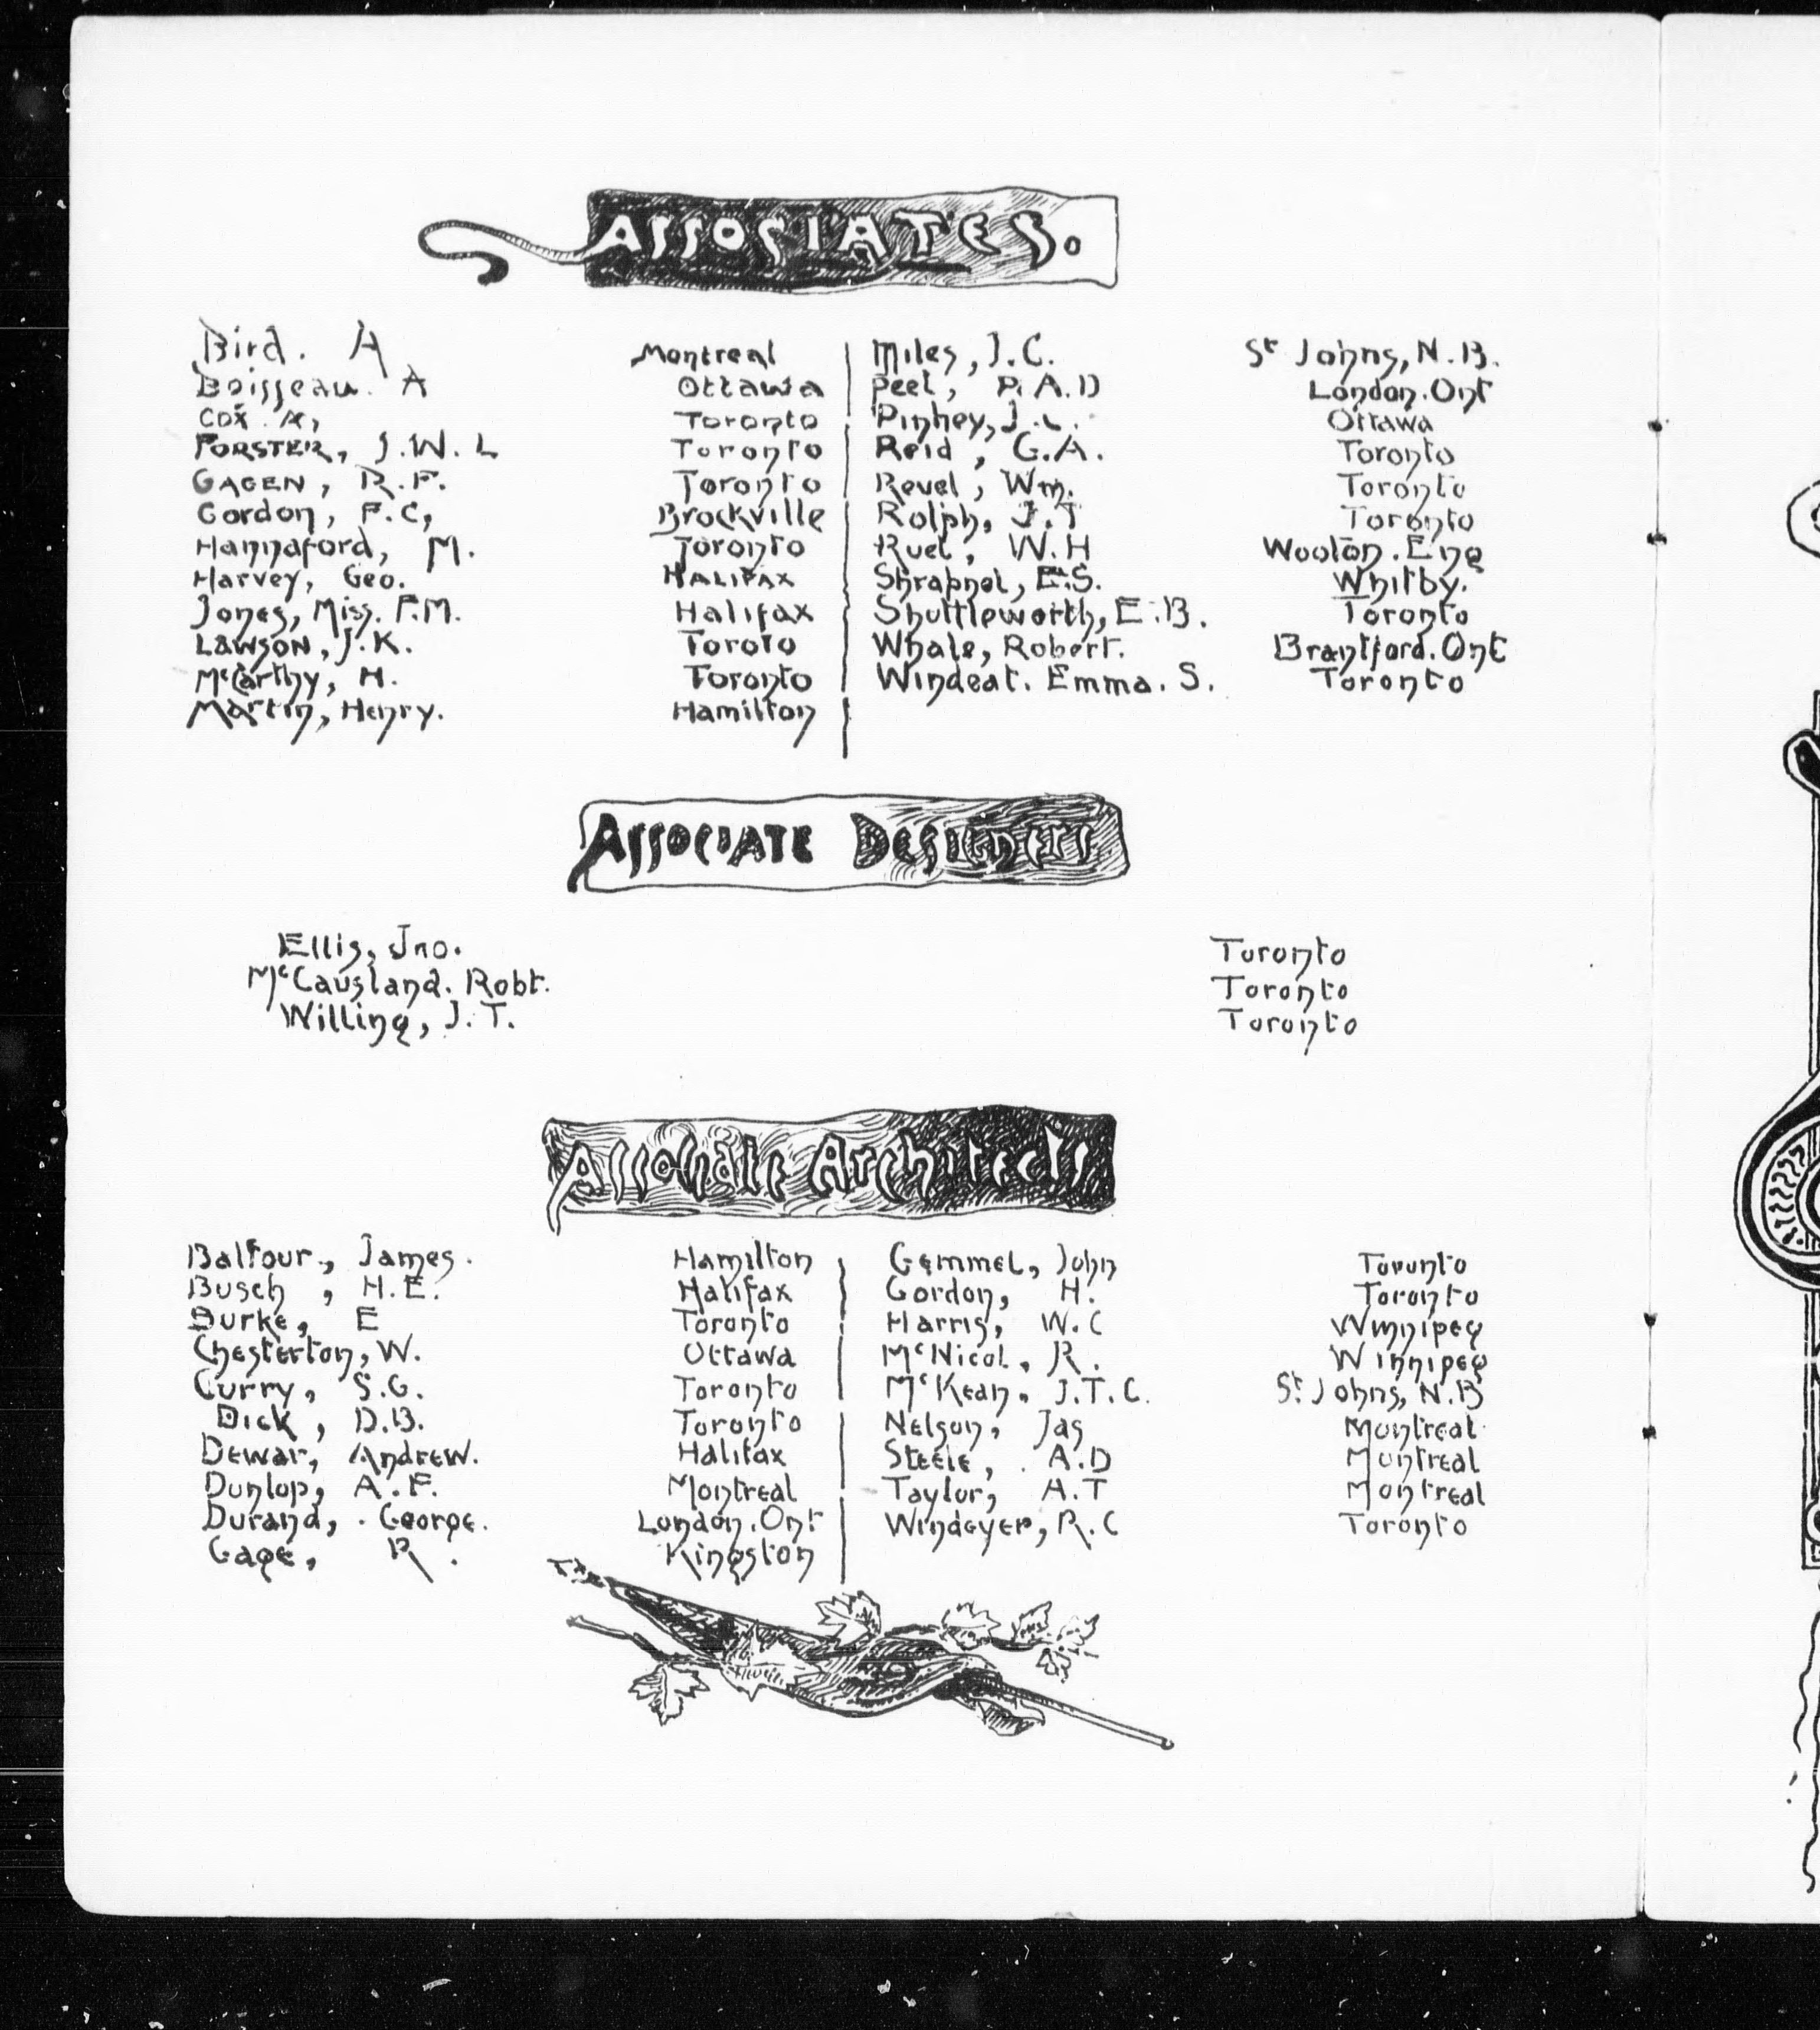 ASSOCIATES.
Bird. A Montreal
Boisseau. A Ottawa
Cox. A, Toronto
FORSTER, J.W.L Toronto
GAGEN, R.F. Toronto
Gordon, F.C, Brockville
Hannaford, M. Toronto
Harvey, Geo. HALIFAX
Jones, Miss. F.M. Halifax
LAWSON, J.K. Toroto
McCarthy, H. Toronto
Martin, Henry. Hamilton
Miles, J.C. St Johns, N.B.
Peel, P.A.D London.Ont
Pinhey, J.C. Ottawa
Reid, G.A. Toronto
Revel, Wm. Toronto
Rolph, J.T Toronto
Ruel, W.H Woolton.Eng
Shrapnel, E.S. Whitby.
Shuttleworth, E.B. Toronto
Whale, Robert. Brantford.Ont
Windeat. Emma. S. Toronto
ASSOCIATE DESIGNERS
Ellis, Jno. Toronto
McCausland. Robt. Toronto
Willing, J.T. Toronto
Associate Architects
Balfour, James. Hamilton
Busch, H.E. Halifax
Burke, E Toronto
Chesterton, W. Ottawa
Curry, S.G. Toronto
Dick, D.B. Toronto
Dewar, Andrew. Halifax
Dunlop, A.F. Montreal
Durand, George. London.Ont
Gage, R. Kingston
Gemmel, John Toronto
Gordon, H. Toronto
Harris, W.C Winnipeg
McNicol, R. Winnipeg
McKean, J.T.C. St Johns, N.B
Nelson, Jas Montreal
Steele, A.D Montreal
Taylor, A.T Montreal
Windeyer, R.C Toronto